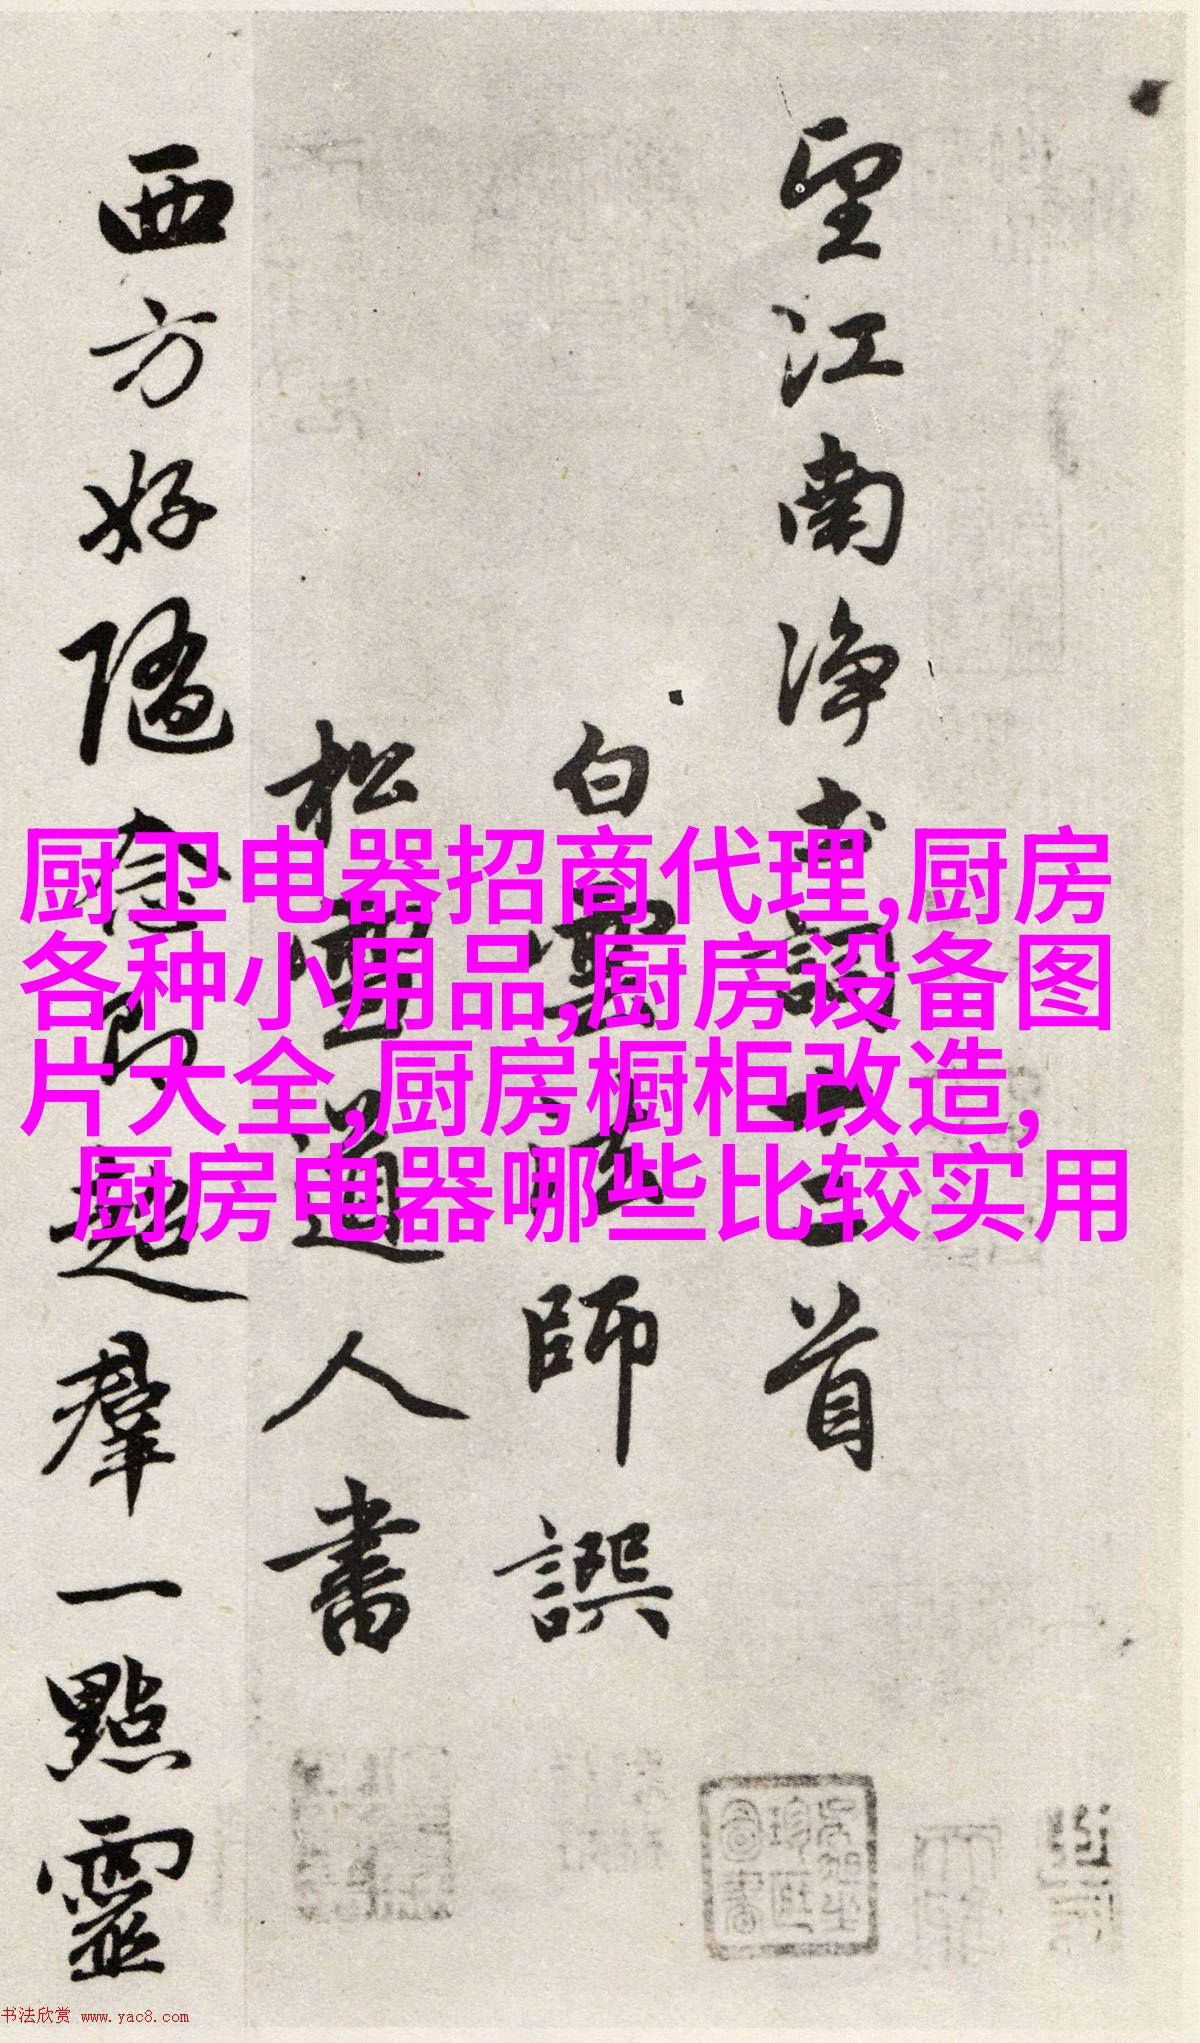 望江南净土詞十二首
白雲法師譔
松雪道人書
西方好隨念即超羣一點靈
厨卫电器招商代理,厨房
各种小用品,厨房设备图
片大全,厨房橱柜改造,
厨房电器哪些比较实用
书法欣赏 www.yac8.com